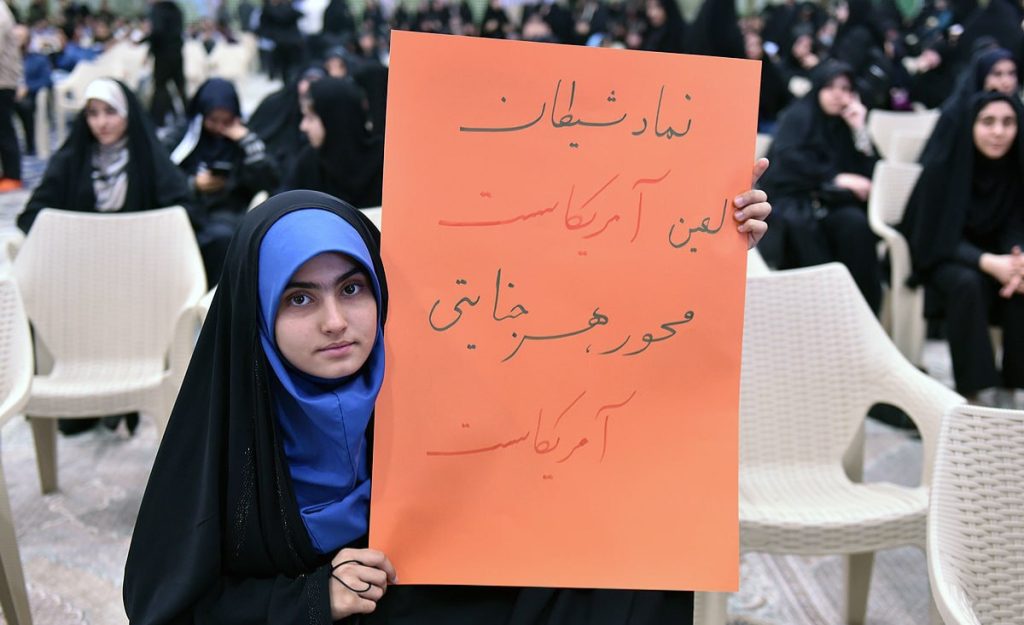 نماد شیطان
لعین آمریکاست
محور هر جنایتی
آمریکاست